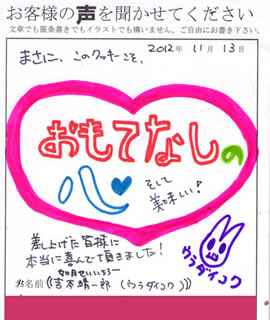 お客様の声を聞かせてください
文章でも箇条書きでもイラストでも構いません。ご自由にお書き下さい。
2012年 11月 13日
まさに、このクッキーこそ、
おもてなしの
心
そして
美味しい！
差し上げた皆様に
本当に喜んで頂きました！
ウラダイコク
お名前